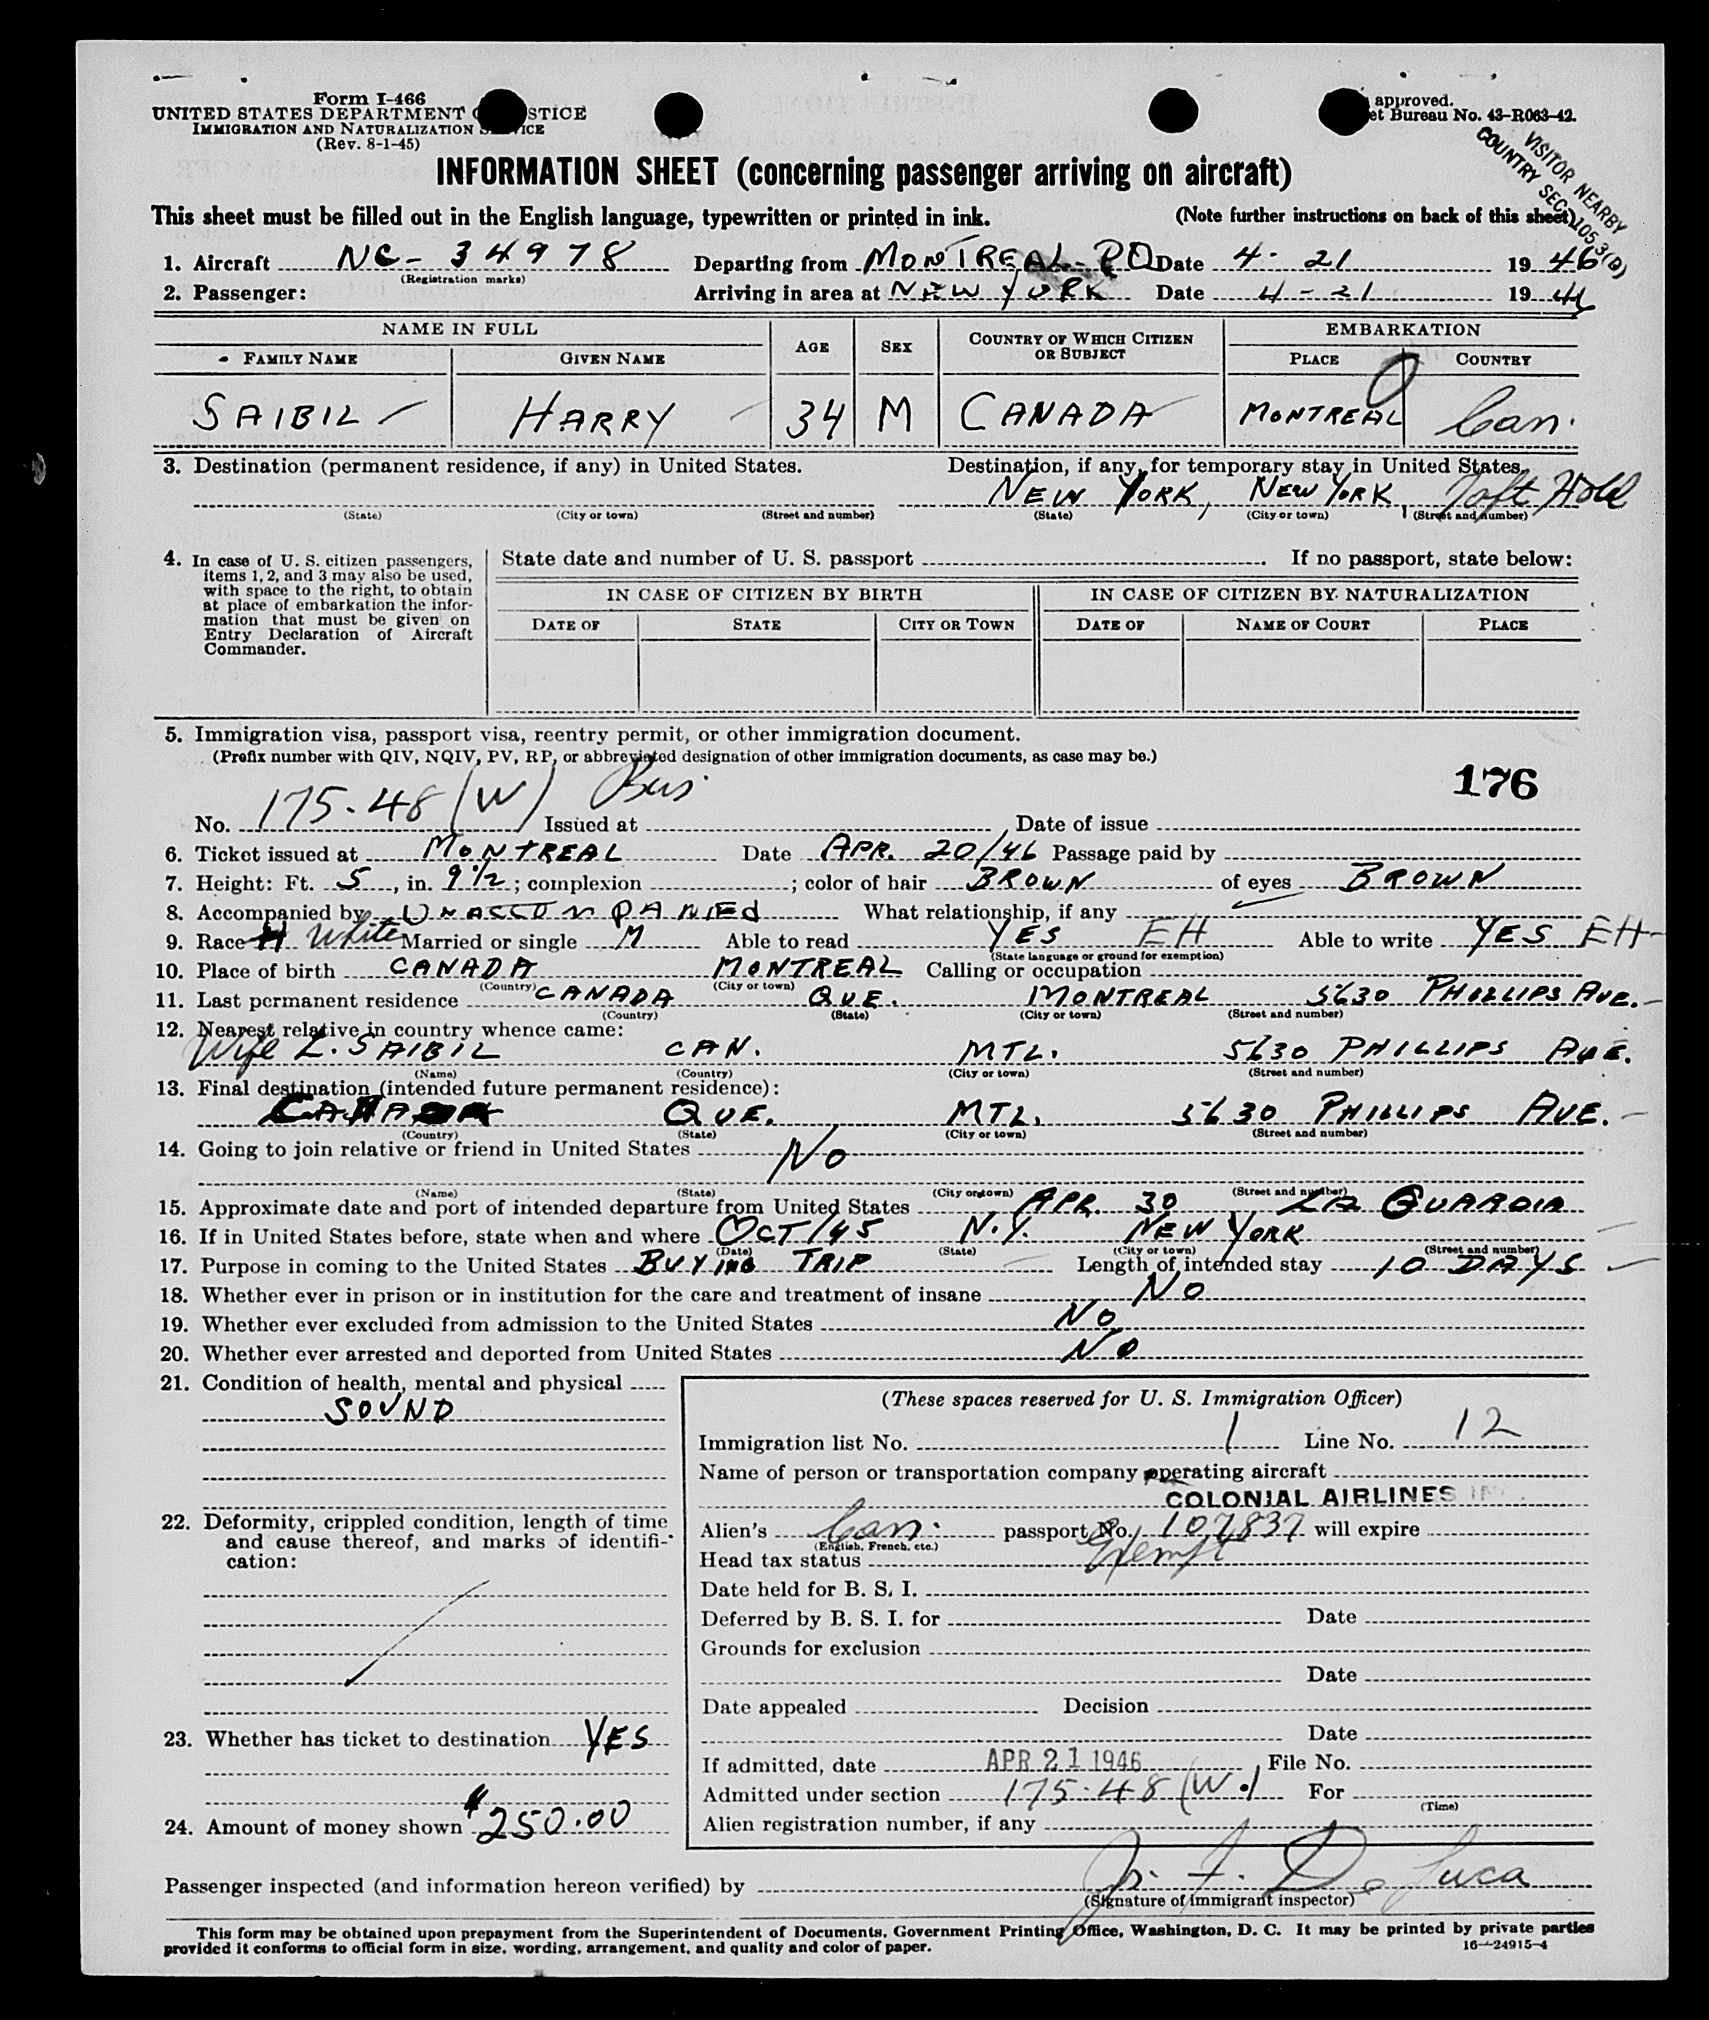 Form I-466
UNITED STATES DEPARTMENT O STICE
IMMIGRATION AND NATURALIZATION S ICE
(Rev. 8-1-45)
approved.
et Bureau No. 43-R063-42.
VISITOR NEARBY
COUNTRY SEC. 105.3(B)
INFORMATION SHEET (concerning passenger arriving on aircraft)
This sheet must be filled out in the English language, typewritten or printed in ink. (Note further instructions on back of this sheet)
1. Aircraft NC-34978 Departing from MONTREAL-PQ Date 4-21 1946
(Registration marks)
2. Passenger: Arriving in area at NEW YORK Date 4-21 1946
NAME IN FULL AGE SEX COUNTRY OF WHICH CITIZEN OR SUBJECT EMBARKATION
FAMILY NAME GIVEN NAME PLACE COUNTRY
SAIBIL HARRY 34 M CANADA MONTREAL Can.
3. Destination (permanent residence, if any) in United States. Destination, if any, for temporary stay in United States.
NEW YORK, NEW YORK, Taft Hotel
(State) (City or town) (Street and number) (State) (City or town) (Street and number)
4. In case of U. S. citizen passengers, items 1, 2, and 3 may also be used, with space to the right, to obtain at place of embarkation the information that must be given on Entry Declaration of Aircraft Commander.
State date and number of U. S. passport If no passport, state below:
IN CASE OF CITIZEN BY BIRTH IN CASE OF CITIZEN BY NATURALIZATION
DATE OF STATE CITY OR TOWN DATE OF NAME OF COURT PLACE
5. Immigration visa, passport visa, reentry permit, or other immigration document.
(Prefix number with QIV, NQIV, PV, RP, or abbreviated designation of other immigration documents, as case may be.)
176
No. 175.48 (W) Bus. Issued at Date of issue
6. Ticket issued at MONTREAL Date APR. 20/46 Passage paid by
7. Height: Ft. 5, in. 9½; complexion ; color of hair BROWN of eyes BROWN
8. Accompanied by UNACCOMPANIED What relationship, if any
9. Race H White Married or single M Able to read YES EH Able to write YES EH
(State language or ground for exemption)
10. Place of birth CANADA MONTREAL Calling or occupation
(Country) (City or town)
11. Last permanent residence CANADA QUE. MONTREAL 5630 PHILLIPS AVE.
(Country) (State) (City or town) (Street and number)
12. Nearest relative in country whence came:
Wife L. SAIBIL CAN. MTL. 5630 PHILLIPS AVE.
(Name) (Country) (City or town) (Street and number)
13. Final destination (intended future permanent residence):
CANADA QUE. MTL. 5630 PHILLIPS AVE.
(Country) (State) (City or town) (Street and number)
14. Going to join relative or friend in United States No
(Name) (State) (City or town) (Street and number)
15. Approximate date and port of intended departure from United States APR. 30 LA GUARDIA
16. If in United States before, state when and where OCT/45 N.Y. NEW YORK
(Date) (State) (City or town) (Street and number)
17. Purpose in coming to the United States BUYING TRIP Length of intended stay 10 DAYS
18. Whether ever in prison or in institution for the care and treatment of insane No
19. Whether ever excluded from admission to the United States No
20. Whether ever arrested and deported from United States No
21. Condition of health, mental and physical
SOUND
22. Deformity, crippled condition, length of time and cause thereof, and marks of identification:
23. Whether has ticket to destination YES
24. Amount of money shown $250.00
(These spaces reserved for U. S. Immigration Officer)
Immigration list No. 1 Line No. 12
Name of person or transportation company operating aircraft
COLONIAL AIRLINES INC.
Alien's Can. passport No. 107837 will expire
(English, French, etc.)
Head tax status Exempt
Date held for B. S. I.
Deferred by B. S. I. for Date
Grounds for exclusion
Date
Date appealed Decision
Date
If admitted, date APR 21 1946 File No.
Admitted under section 175.48 (W.) For
(Time)
Alien registration number, if any
Passenger inspected (and information hereon verified) by J. F. De Luca
(Signature of immigrant inspector)
This form may be obtained upon prepayment from the Superintendent of Documents, Government Printing Office, Washington, D. C. It may be printed by private parties
provided it conforms to official form in size, wording, arrangement, and quality and color of paper.
16—24915-4